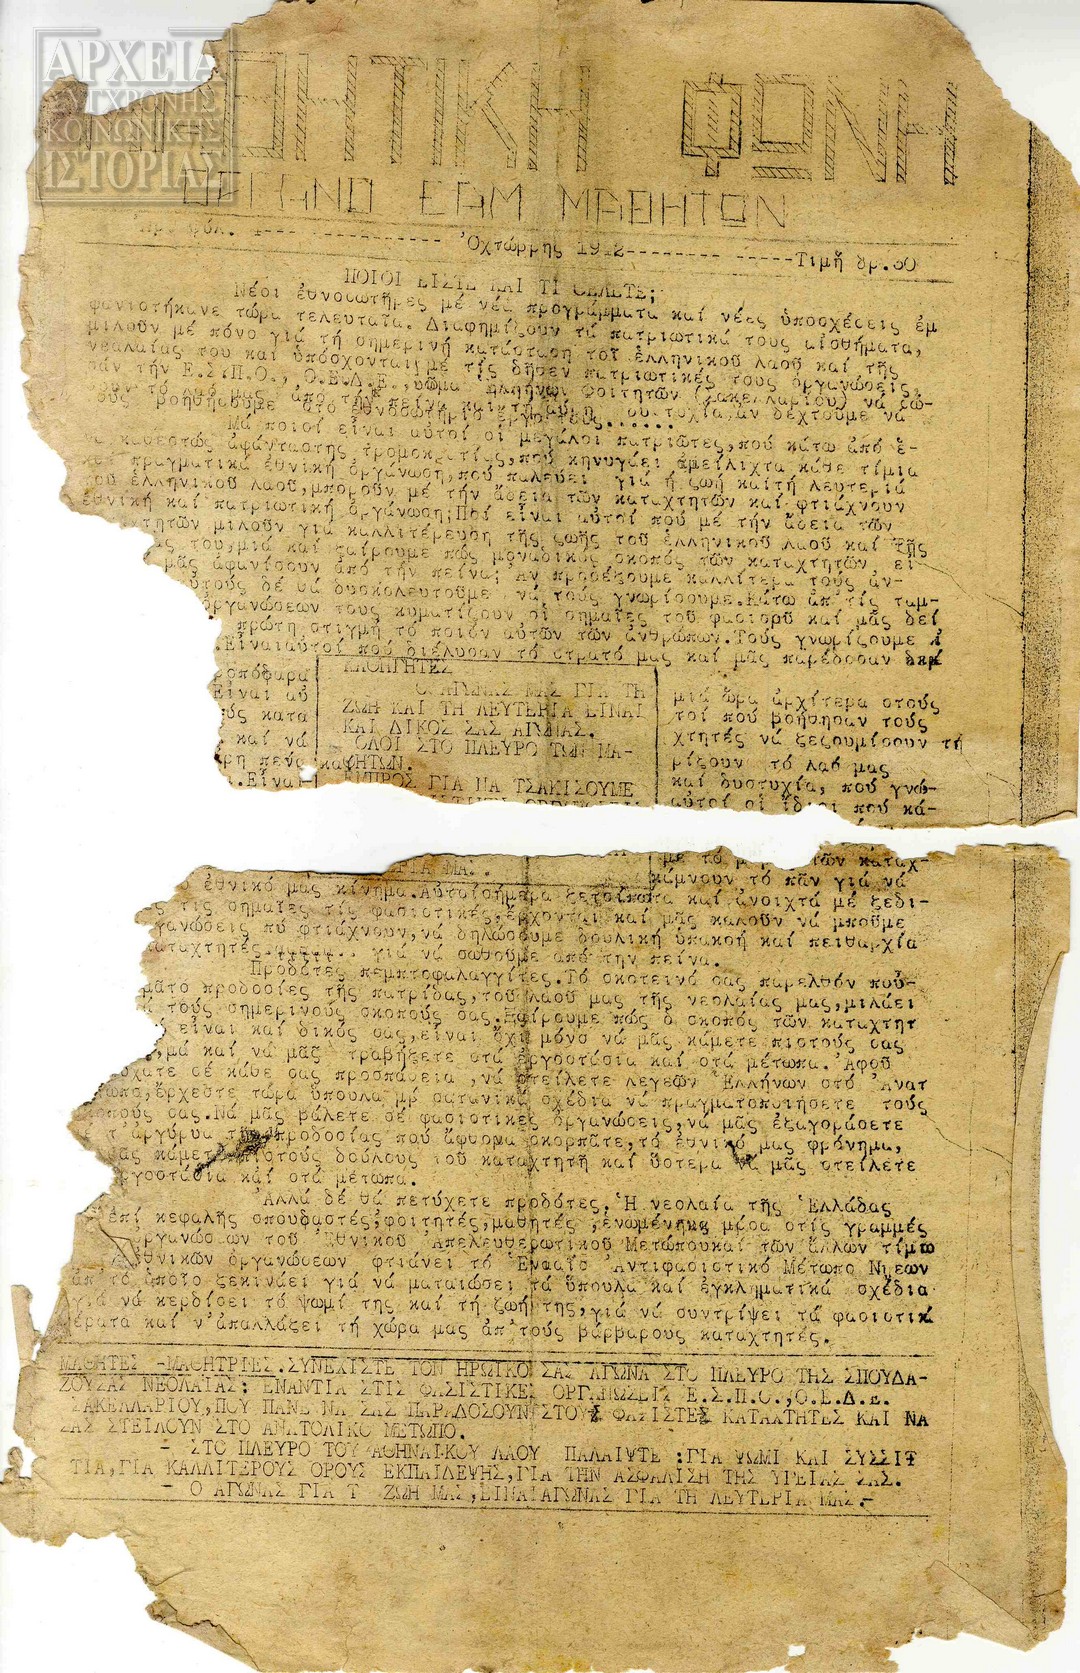 ΑΡΧΕΙΑ
ΣΥΓΧΡΟΝΗΣ
ΚΟΙΝΩΝΙΚΗΣ
ΙΣΤΟΡΙΑΣ
ΘΗΤΙΚΗ ΦΩΝΗ
ΟΡΓΑΝΟ ΕΑΜ ΜΑΘΗΤΩΝ
φύλ. 1 Ὀχτώρρης 1942 Τιμή δρ.30
ΠΟΙΟΙ ΕΙΣΤΕ ΚΑΙ ΤΙ ΘΕΛΕΤΕ;
Νέοι ἐθνοσωτῆρες μέ νέα προγράμματα καί νέες ὑποσχέσεις ἐμ
φανιστήκανε τώρα τελευταῖα. Διαφημίζουν τά πατριωτικά τους αἰσθήματα,
μιλοῦν μέ πόνο γιά τή σημερινή κατάσταση τοῦ ἑλληνικοῦ λαοῦ καί τῆς
νεολαίας του καί ὑπόσχονται μέ τίς δῆθεν πατριωτικές τους ὀργανώσεις,
ἄν τήν Ε.Σ.Π.Ο., Ο.Ε.Δ.Ε., Ἑλλήνων Φοιτητῶν (Σακελλαρίου) νά σώ-
σουν τό λαό μας ἀπό τήν πεῖνα καί τή δυστυχία, ἄν δεχτοῦμε νά
τούς βοηθήσουμε στό ἐθνοσωτήριο ἔργο τους......
Μά ποιοί εἶναι αὐτοί οἱ μεγάλοι πατριῶτες, πού κάτω ἀπό ἕ-
να καθεστώς ἀφάνταστης τρομοκρατίας, πού κηνυγάει ἀμείλιχτα κάθε τίμια
καί πραγματικά ἐθνική ὀργάνωση, πού παλεύει γιά ἡ ζωή καίτή λευτεριά
τοῦ ἑλληνικοῦ λαοῦ, μποροῦν μέ τήν ἄδεια τῶν καταχτητῶν καί φτιάχνουν
ἐθνική καί πατριωτική ὀργάνωση; Ποί εἶναι αὐτοί πού μέ τήν ἄδεια τῶν
χτητῶν μιλοῦν γιά καλλιτέρευση τῆς ζωῆς τοῦ ἑλληνικοῦ λαοῦ καί τῆς
ας του, μιά καί ξαίρουμε πώς μοναδικός σκοπός τῶν καταχτητῶν εἶ
μᾶς ἀφανίσουν ἀπό τήν πεῖνα; Ἄν προσέξουμε καλλίτερα τούς ἀν-
ὐτούς δέ θά δυσκολευτοῦμε νά τούς γνωρίσουμε. Κάτω ἀπ' τίς ταμ-
ὀργανώσεων τους κυματίζουν οἱ σημαῖες τοῦ φασισμοῦ καί μᾶς δεί
πρώτη στιγμή τό ποιόν αὐτῶν τῶν ἀνθρώπων. Τούς γνωρίζουμε
.Εἶναιαὐτοί πού διέλυσαν τό στρατό μας καί μᾶς παρέδοσαν
ροπόφαρα
Εἶναι αὐ
ύς κατα
καί νά
ρη πεῖνα κα
.Εἶναι-
ΚΑΘΗΓΗΤΕΣ
Ο ΑΓΩΝΑΣ ΜΑΣ ΓΙΑ ΤΗ
ΖΩΗ ΚΑΙ ΤΗ ΛΕΥΤΕΡΙΑ ΕΙΝΑΙ
ΚΑΙ ΔΙΚΟΣ ΣΑΣ ΑΓΩΝΑΣ.
ΟΛΟΙ ΣΤΟ ΠΛΕΥΡΟ ΤΩΝ ΜΑ-
ΘΗΤΩΝ.
ΕΜΠΡΟΣ ΓΙΑ ΝΑ ΤΣΑΚΙΣΟΥΜΕ
μιά ὥρα ἀρχίτερα στούς
τοί πού βοήθησαν τούς
χτητές νά ξεζουμίσουν τή
ρίζουν τό λαό μας
καί δυστυχία, πού γνώ-
αὐτοί οἱ ἴδιοι πού κά-
ΡΙΑ ΜΑΣ.
με τό τῶν καταχ-
κάμνουν τό πᾶν γιά νά
ἐθνικό μας κίνημα. Αὐτοίσήμερα ξετσίπωτα καί ἀνοιχτά μέ ξεδι-
ς τίς σημαῖες τίς φασιστικές, ἔρχονται καί μᾶς καλοῦν νά μποῦμε
γανώσεις πύ φτιάχνουν, νά δηλώσουμε δουλική ὑπακοή καί πειθαρχία
καταχτητές....... γιά νά σωθοῦμε ἀπό τήν πεῖνα.
Προδότες πεμπτοφαλαγγίτες. Τό σκοτεινό σας παρελθόν πού-
μᾶτο προδοσίες τῆς πατρίδας, τοῦ λαοῦ μας τῆς νεολαίας μας, μιλάει
τούς σημερινούς σκοπούς σας. Ξαίρουμε πώς ὁ σκοπός τῶν καταχτητ
εἶναι καί δικός σας, εἶναι ὄχι μόνο νά μᾶς κάμετε πιστούς σας
, μά καί νά μᾶς τραβήξετε στά ἐργοστάσια καί στά μέτωπα. Ἀφοῦ
χατε σέ κάθε σας προσπάθεια, νά στείλετε λεγεῶν Ἑλλήνων στό Ἀνατ
ωπα, ἔρχεστε τώρα ὕπουλα μέ σατανικά σχέδια νά πραγματοποιήσετε τούς
οπούς σας. Νά μᾶς βάλετε σέ φασιστικές ὀργανώσεις, νά μᾶς ἐξαγοράσετε
τ' ἀργύρια τῆς προδοσίας πού ἄφθονα σκορπᾶτε, τό ἐθνικό μας φρόνημα,
ᾶς κάμετε πιστούς δούλους τοῦ καταχτητῆ καί ὕστερα νά μᾶς στείλετε
ργοστάσια καί στά μέτωπα.
Ἀλλά δέ θά πετύχετε προδότες. Ἡ νεολαία τῆς Ἑλλάδας
ἐπί κεφαλῆς σπουδαστές, φοιτητές, μαθητές, ἑνωμένη μέσα στίς γραμμές
ργανώσεων τοῦ Ἐθνικοῦ Ἀπελευθερωτικοῦ Μετώπουκαί τῶν ἄλλων τίμιω
θνικῶν ὀργανώσεων φτιάνει τό Ἑνιαῖο Ἀντιφασιστικό Μέτωπο Νέων
ἀπ τό ὁποῖο ξεκινάει γιά νά ματαιώσει τά ὕπουλα καί ἐγκληματικά σχέδια
γιά νά κερδίσει τό ψωμί της καί τή ζωή της, γιά νά συντρίψει τά φασιστικά
τέρατα καί ν' ἀπαλλάξει τή χώρα μας ἀπ' τούς βάρβαρους καταχτητές.
ΜΑΘΗΤΕΣ -ΜΑΘΗΤΡΙΕΣ. ΣΥΝΕΧΙΣΤΕ ΤΟΝ ΗΡΩΙΚΟ ΣΑΣ ΑΓΩΝΑ ΣΤΟ ΠΛΕΥΡΟ ΤΗΣ ΣΠΟΥΔΑ-
ΖΟΥΣΑΣ ΝΕΟΛΑΙΑΣ: ΕΝΑΝΤΙΑ ΣΤΙΣ ΦΑΣΙΣΤΙΚΕΣ ΟΡΓΑΝΩΣΕΙΣ Ε.Σ.Π.Ο., Ο.Ε.Δ.Ε.
ΣΑΚΕΛΛΑΡΙΟΥ, ΠΟΥ ΠΑΝΕ ΝΑ ΣΑΣ ΠΑΡΑΔΟΣΟΥΝ ΣΤΟΥΣ ΦΑΣΙΣΤΕΣ ΚΑΤΑΧΤΗΤΕΣ ΚΑΙ ΝΑ
ΣΑΣ ΣΤΕΙΛΟΥΝ ΣΤΟ ΑΝΑΤΟΛΙΚΟ ΜΕΤΩΠΟ.
- ΣΤΟ ΠΛΕΥΡΟ ΤΟΥ ΑΘΗΝΑΙΚΟΥ ΛΑΟΥ ΠΑΛΑΙΨΤΕ :ΓΙΑ ΨΩΜΙ ΚΑΙ ΣΥΣΣΙΤ
ΤΙΑ, ΓΙΑ ΚΑΛΛΙΤΕΡΟΥΣ ΟΡΟΥΣ ΕΚΠΑΙΔΕΨΗΣ, ΓΙΑ ΤΗΝ ΑΣΦΑΛΙΣΗ ΤΗΣ ΥΓΕΙΑΣ ΣΑΣ.
- Ο ΑΓΩΝΑΣ ΓΙΑ Τ ΖΩΗ ΜΑΣ, ΕΙΝΑΙ ΑΓΩΝΑΣ ΓΙΑ ΤΗ ΛΕΥΤΕΡΙΑ ΜΑΣ.-